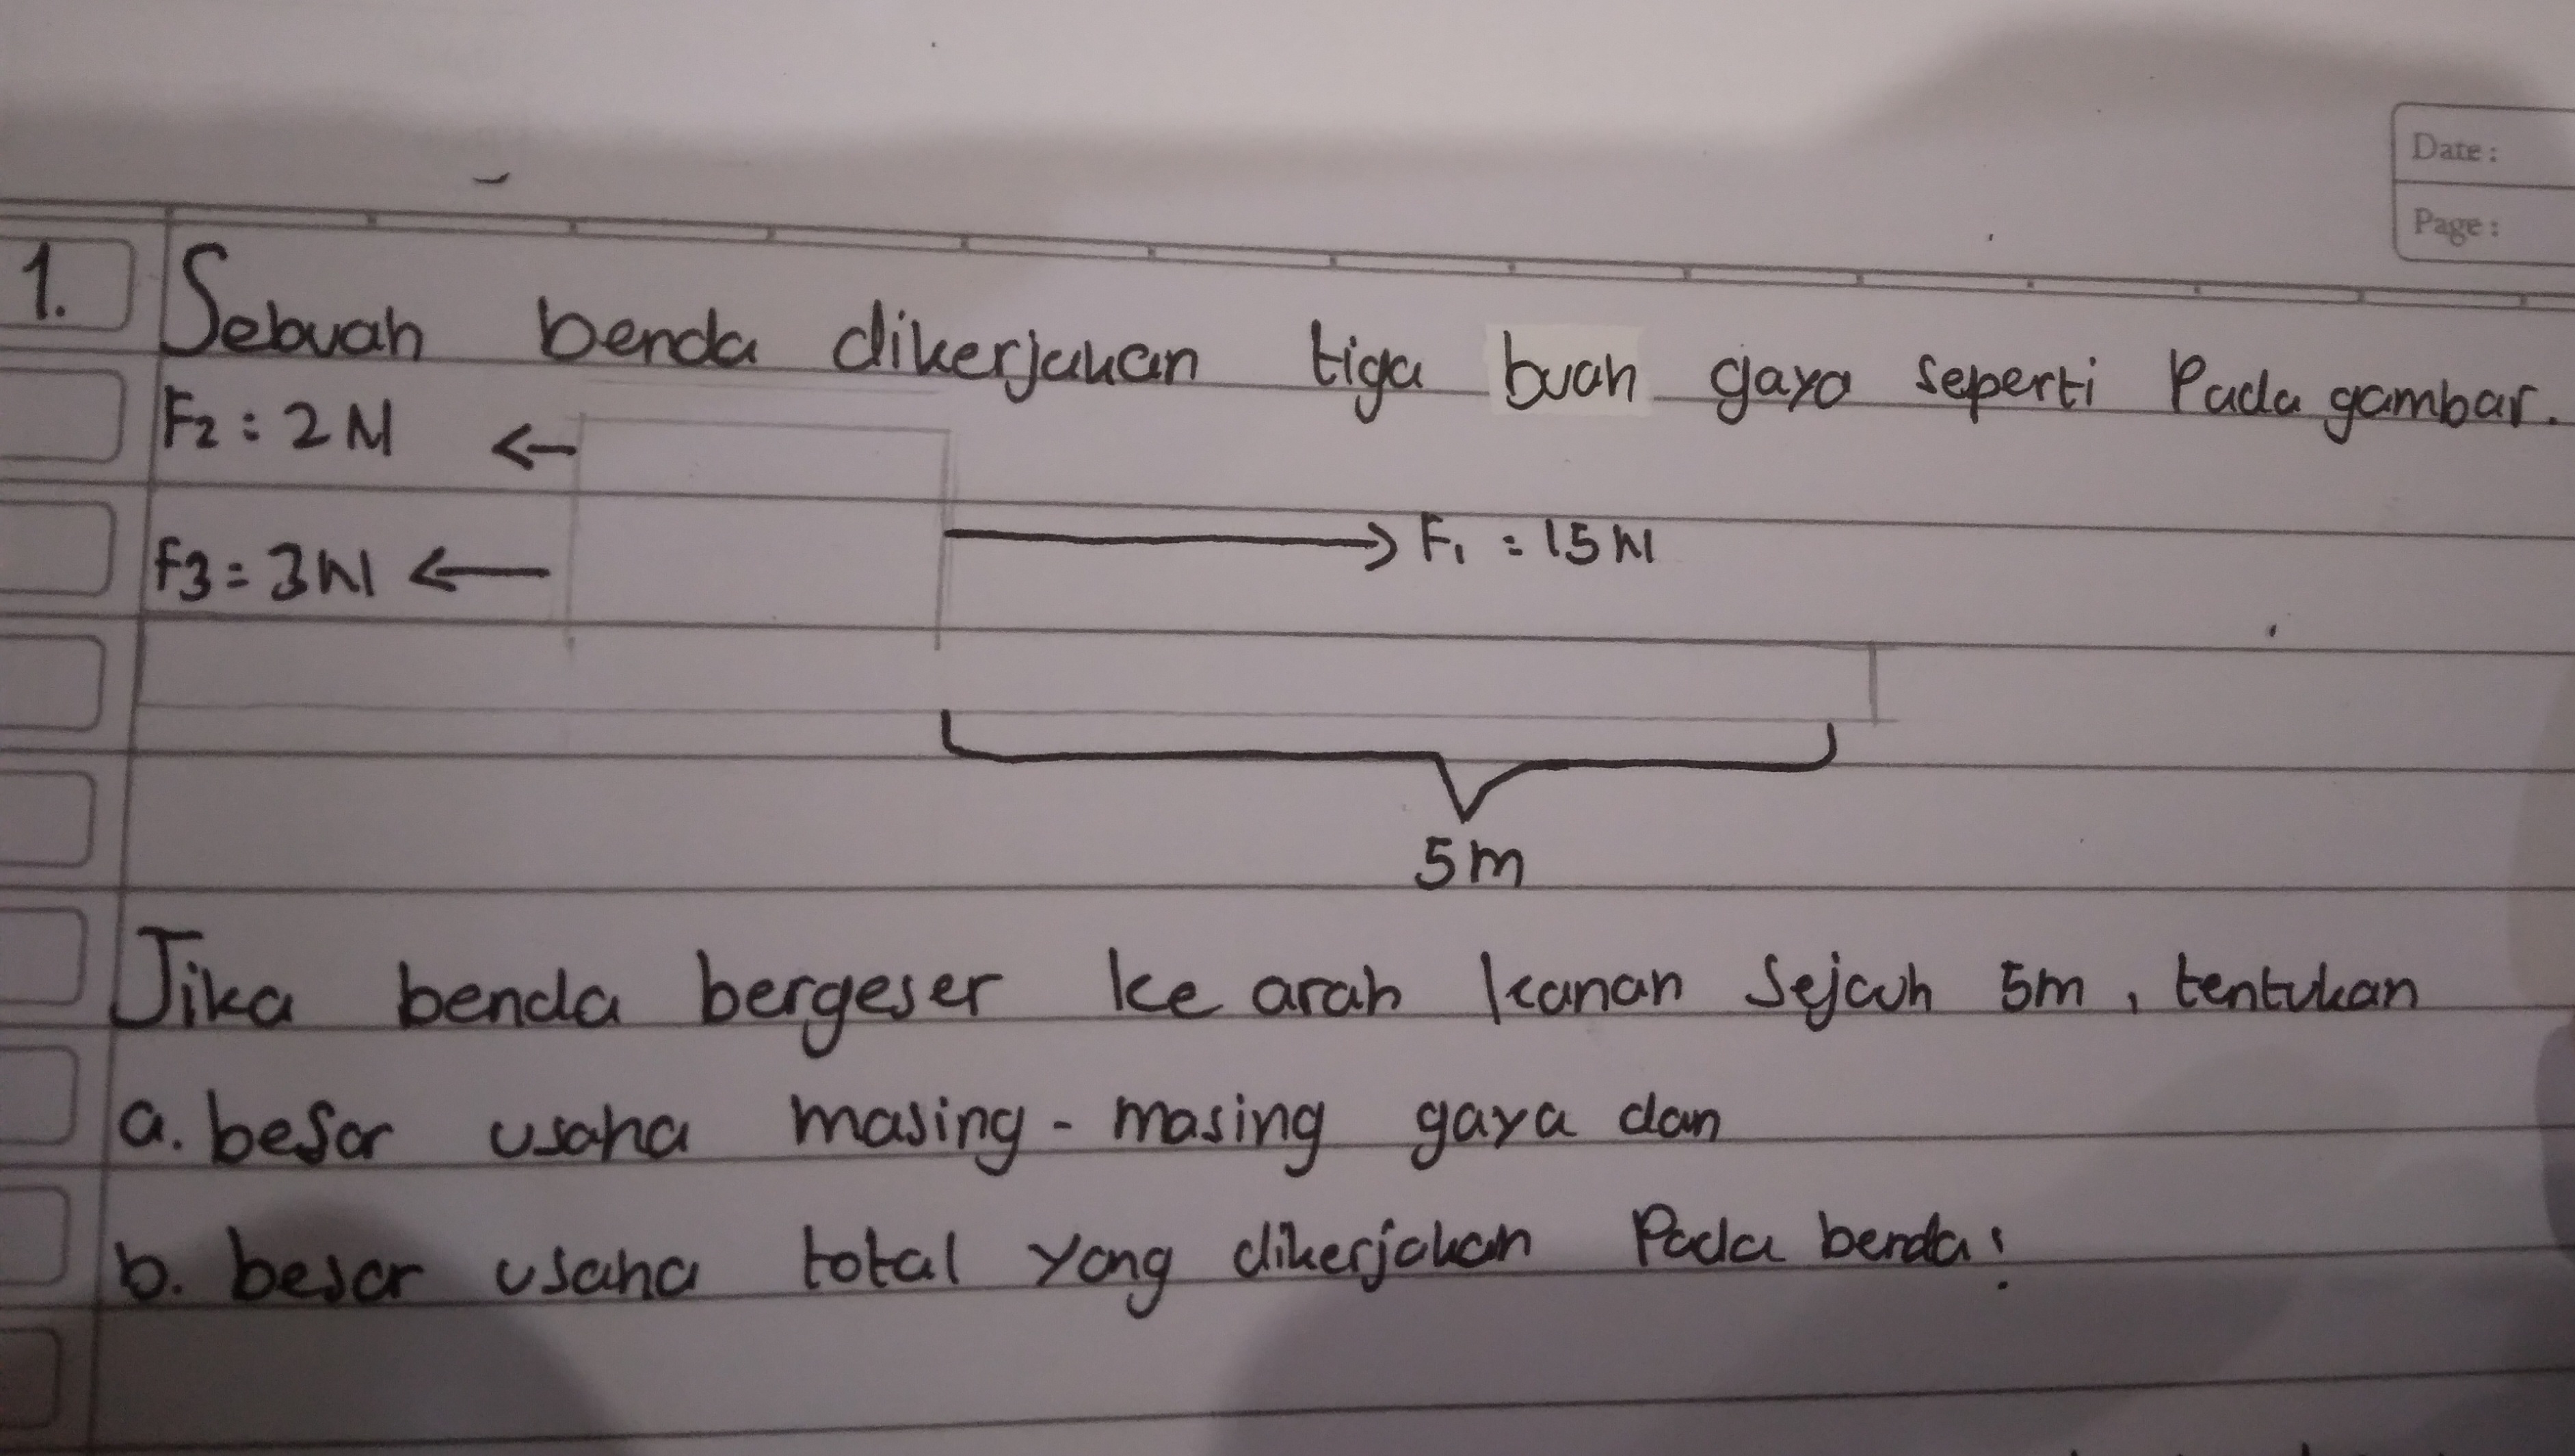 Date :
Page :
1. Sebuah benda dikerjakan tiga buah gaya seperti Pada gambar.
F2 : 2 N
F3 = 3 N
F1 = 15 N
5 m
Jika benda bergeser ke arah kanan Sejauh 5m, tentukan
a. besar usaha masing - masing gaya dan
b. besar usaha total yang dikerjakan Pada benda!